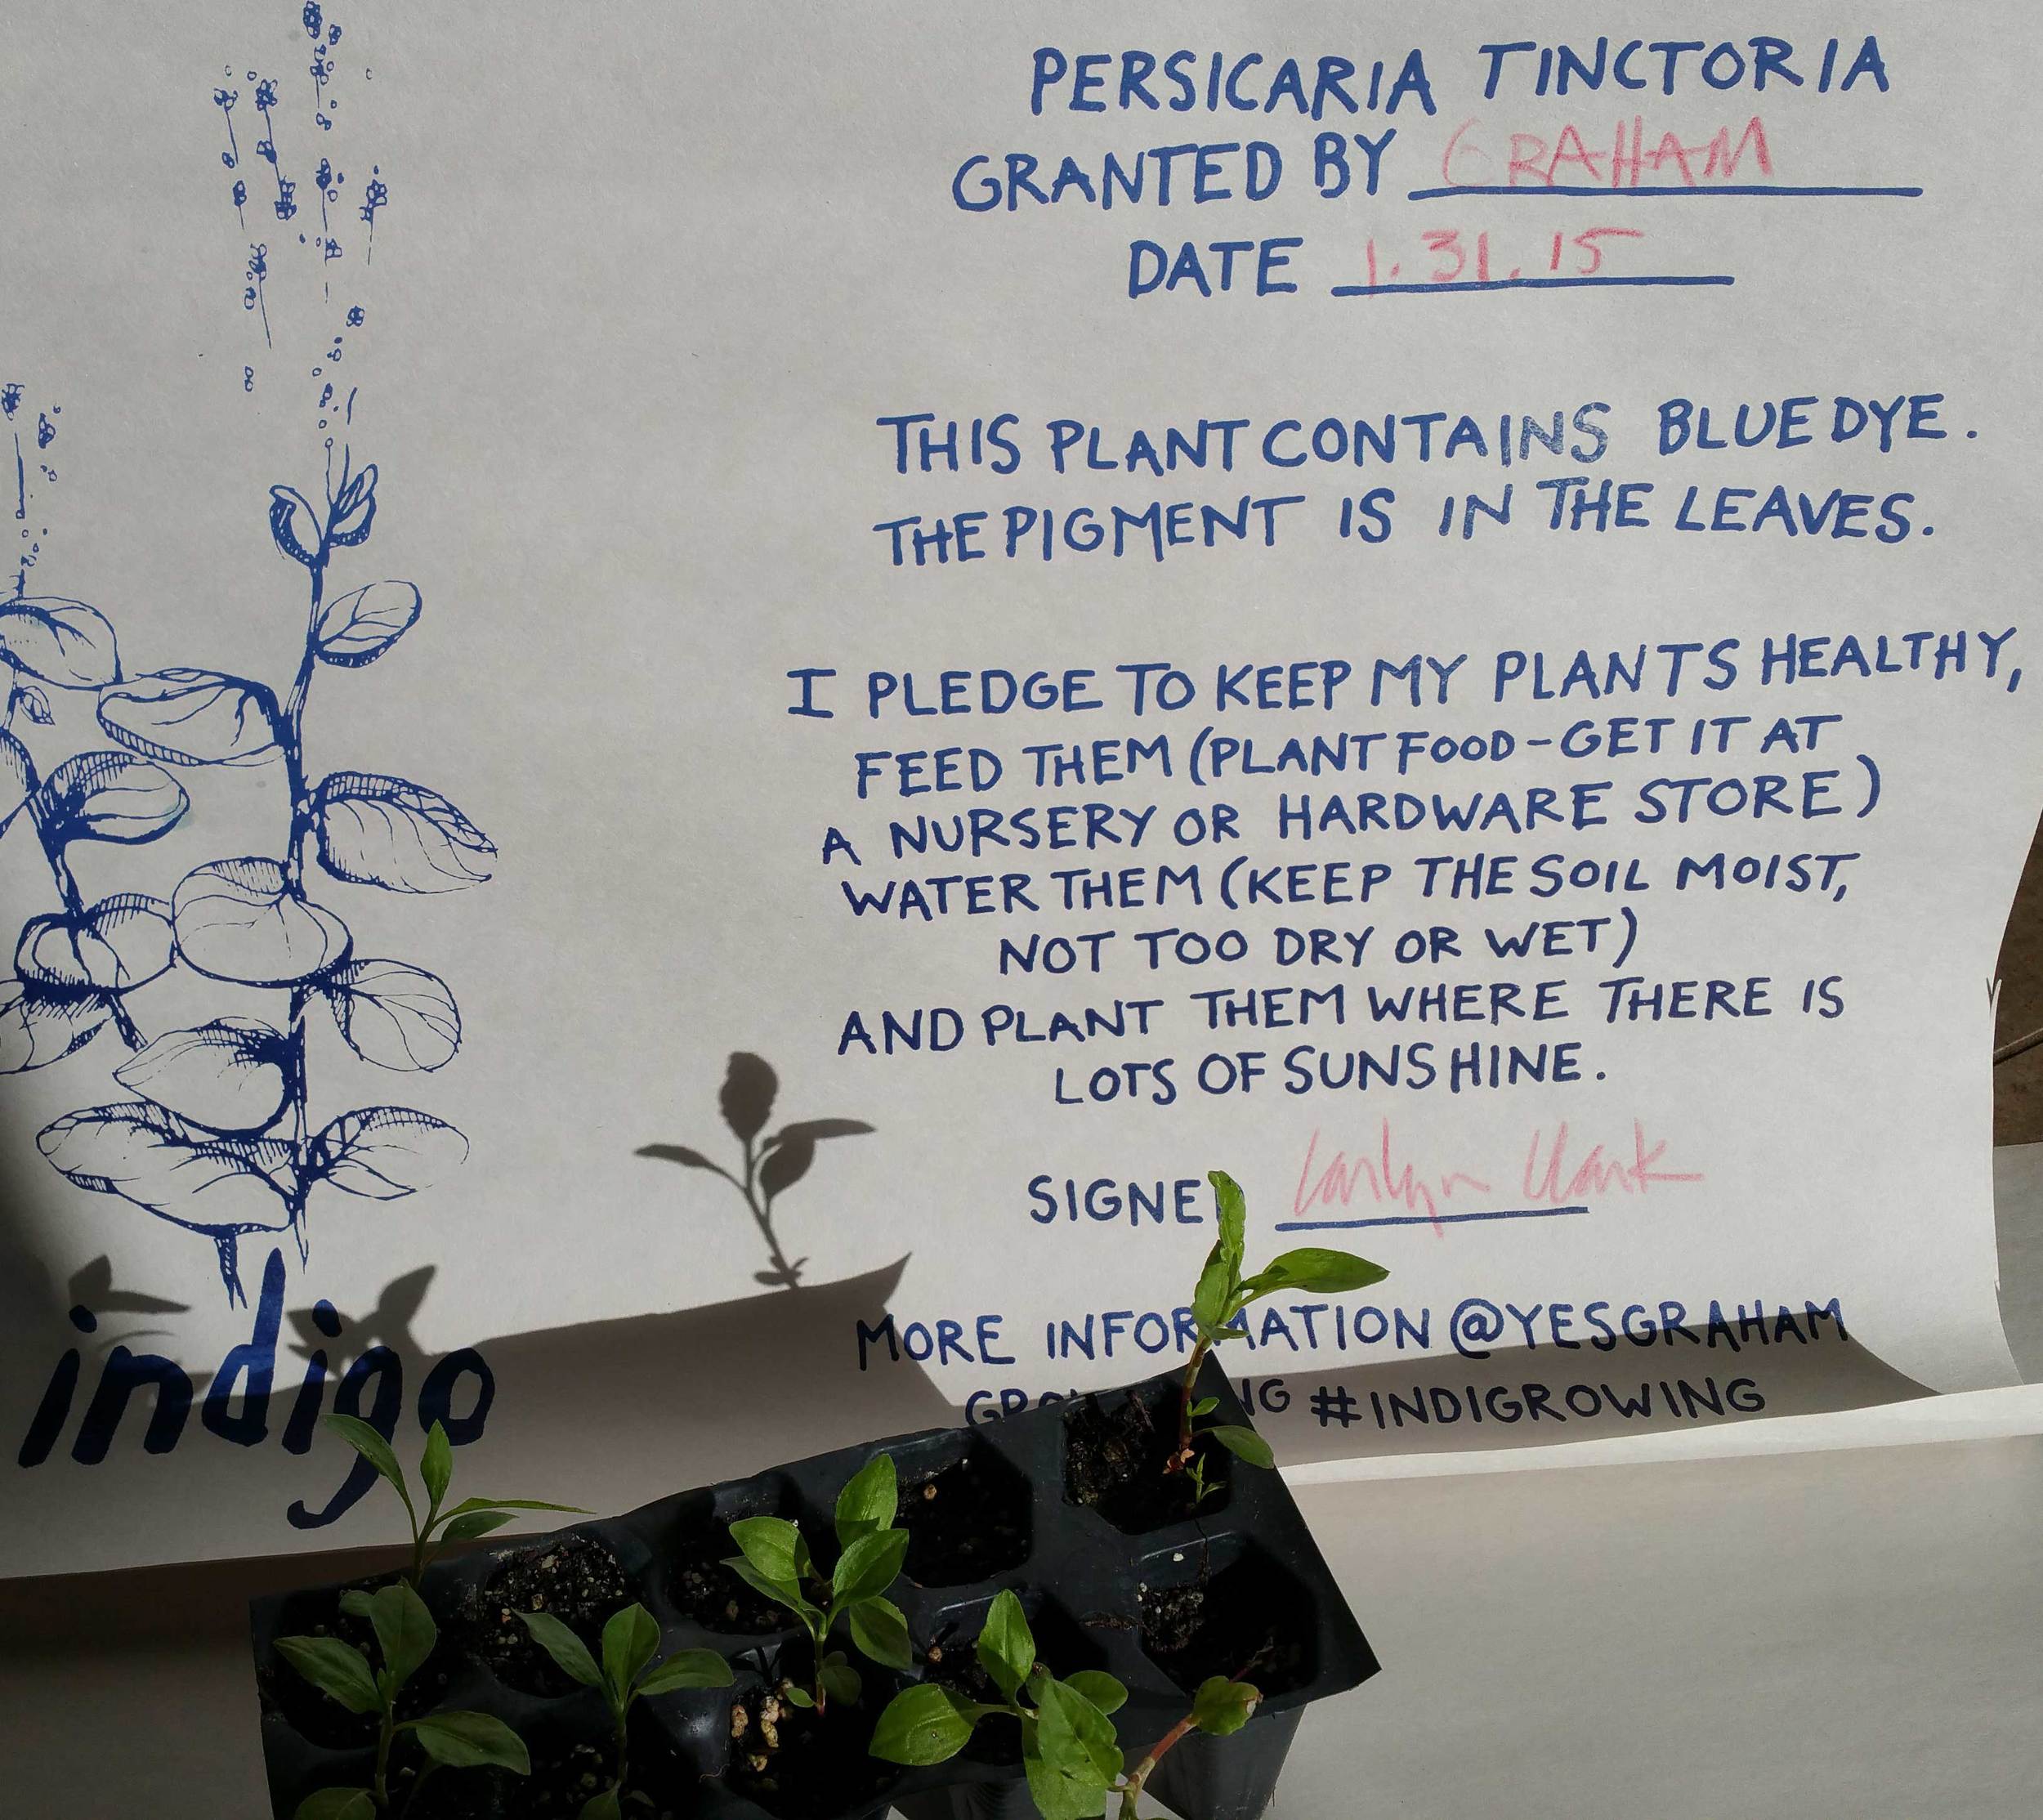 PERSICARIA TINCTORIA
GRANTED BY GRAHAM
DATE 1.31.15
THIS PLANT CONTAINS BLUE DYE.
THE PIGMENT IS IN THE LEAVES.
I PLEDGE TO KEEP MY PLANTS HEALTHY,
FEED THEM (PLANT FOOD-GET IT AT
A NURSERY OR HARDWARE STORE)
WATER THEM (KEEP THE SOIL MOIST,
NOT TOO DRY OR WET)
AND PLANT THEM WHERE THERE IS
LOTS OF SUNSHINE.
SIGNED Clark
MORE INFORMATION @YESGRAHAM
#INDIGROWING
indigo